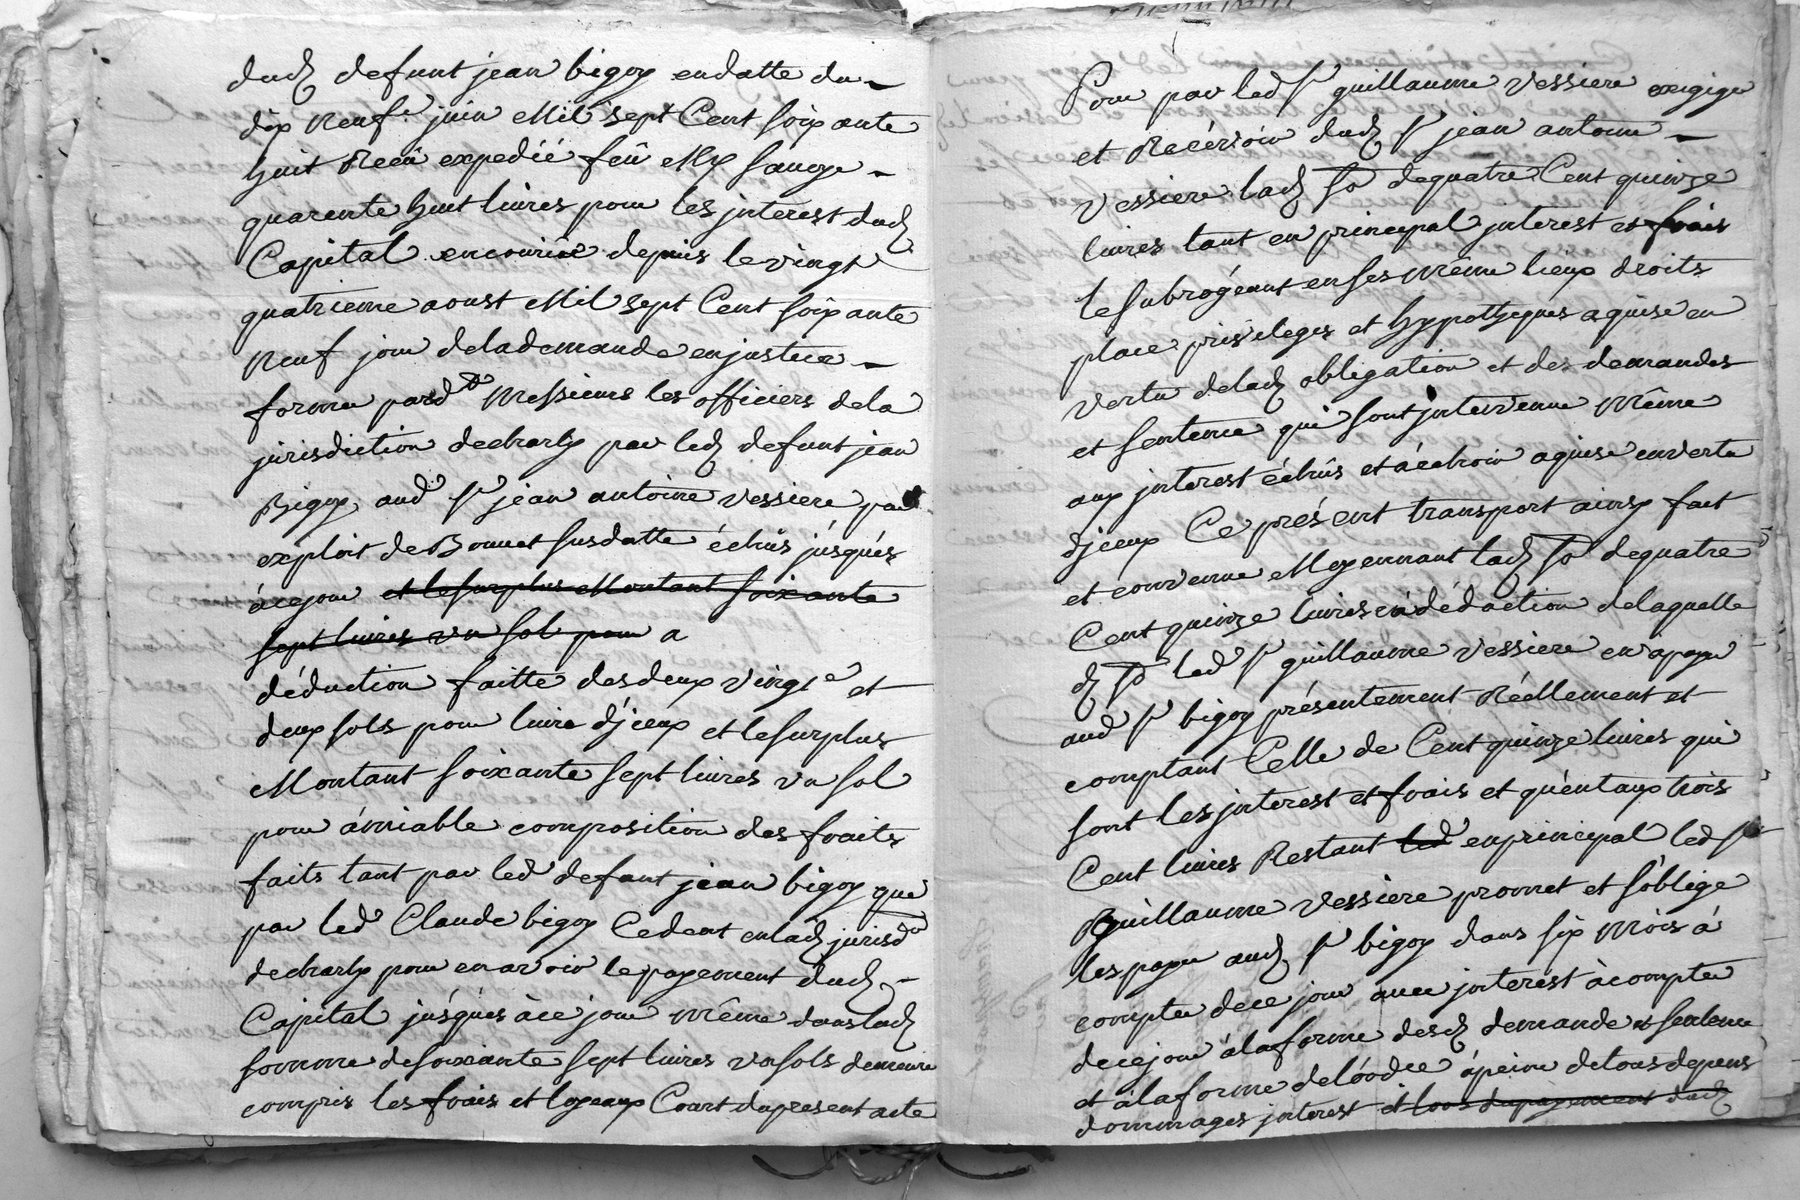 dud defunt jean bigoy endatte du
dix neufe juin Mil sept Cent soixante
huit Recû expedié feû My
quarente huit livres pour les jnterest dud
Capital encourûe depuis le vingt
quatrieme aoust Mil sept Cent soixante
neuf jour deladomande enjustice
formée pard Messieurs les officiers dela
jurisdiction decharly par led defunt jean
Bigoy aud sr jean antoine vessiere par
exploit de Bonnet susdatte échûs jusqués
ácejour et lesurplus Montant soixante
sept livres un sol pour a
déduction faitte desdeux vingte et
deux sols pour livre d'jceux et lesurplus
Montant soixante sept livres un sol
pour ámiable composition des fraits
faits tant par led defunt jean bigoy que
par led Claude bigoy Cedent enlad jurisdon
decharly pour enavoir le payement dud
Capital júsqués àce jour même danslad
somme desoixiante sept livres unsols demeure
compris les frais et loyeaux Court dupresent acte
Pour par led sr guillaume vessiere exigiger
et Recevoir dud sr jean antoine
vessiere lad so dequatre Cent quinze
livres tant en principal jnterest et frais
le subrogéant enses même lieux droits
place privileges et hypotheques aquise en
vertu delad obligation et des demandes
et sentence qui sont jntervenue même
aux jnterest échûs et áechoir aquise envertu
djceux Ce présent transport ainsy fait
et convenue Moyennant lad so dequatre
Cent quinze livres en déduction delaquelle
d so led sr guillaume vessiere en apayé
aud sr bigoy présentement Réellement et
comptant Celle de Cent quinze livres qui
sont les jnterest et frais et quéntaux trois
Cent livres Restant led enprincipal led sr
guillaume vessiere promet et s'oblige
les payer aud sr bigoy dans six mois á
compter dece jour avec jnterest àcompter
decejour álaforme desd demande et sentence
et álaforme delórdce ápeine detous depens
dommages jnterest et dupayement dud